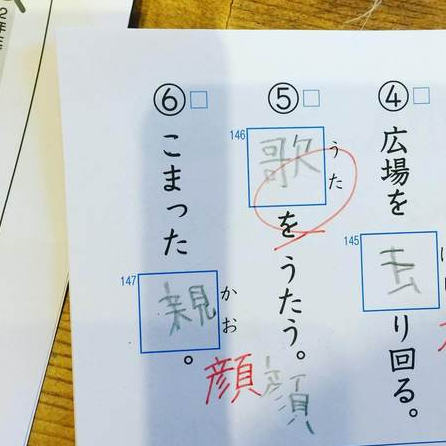 ④□
広場を
145
去
り回る。
⑤□
146
歌
うた
を うたう。
顔
⑥□
こまった
147
親
かお
。
顔